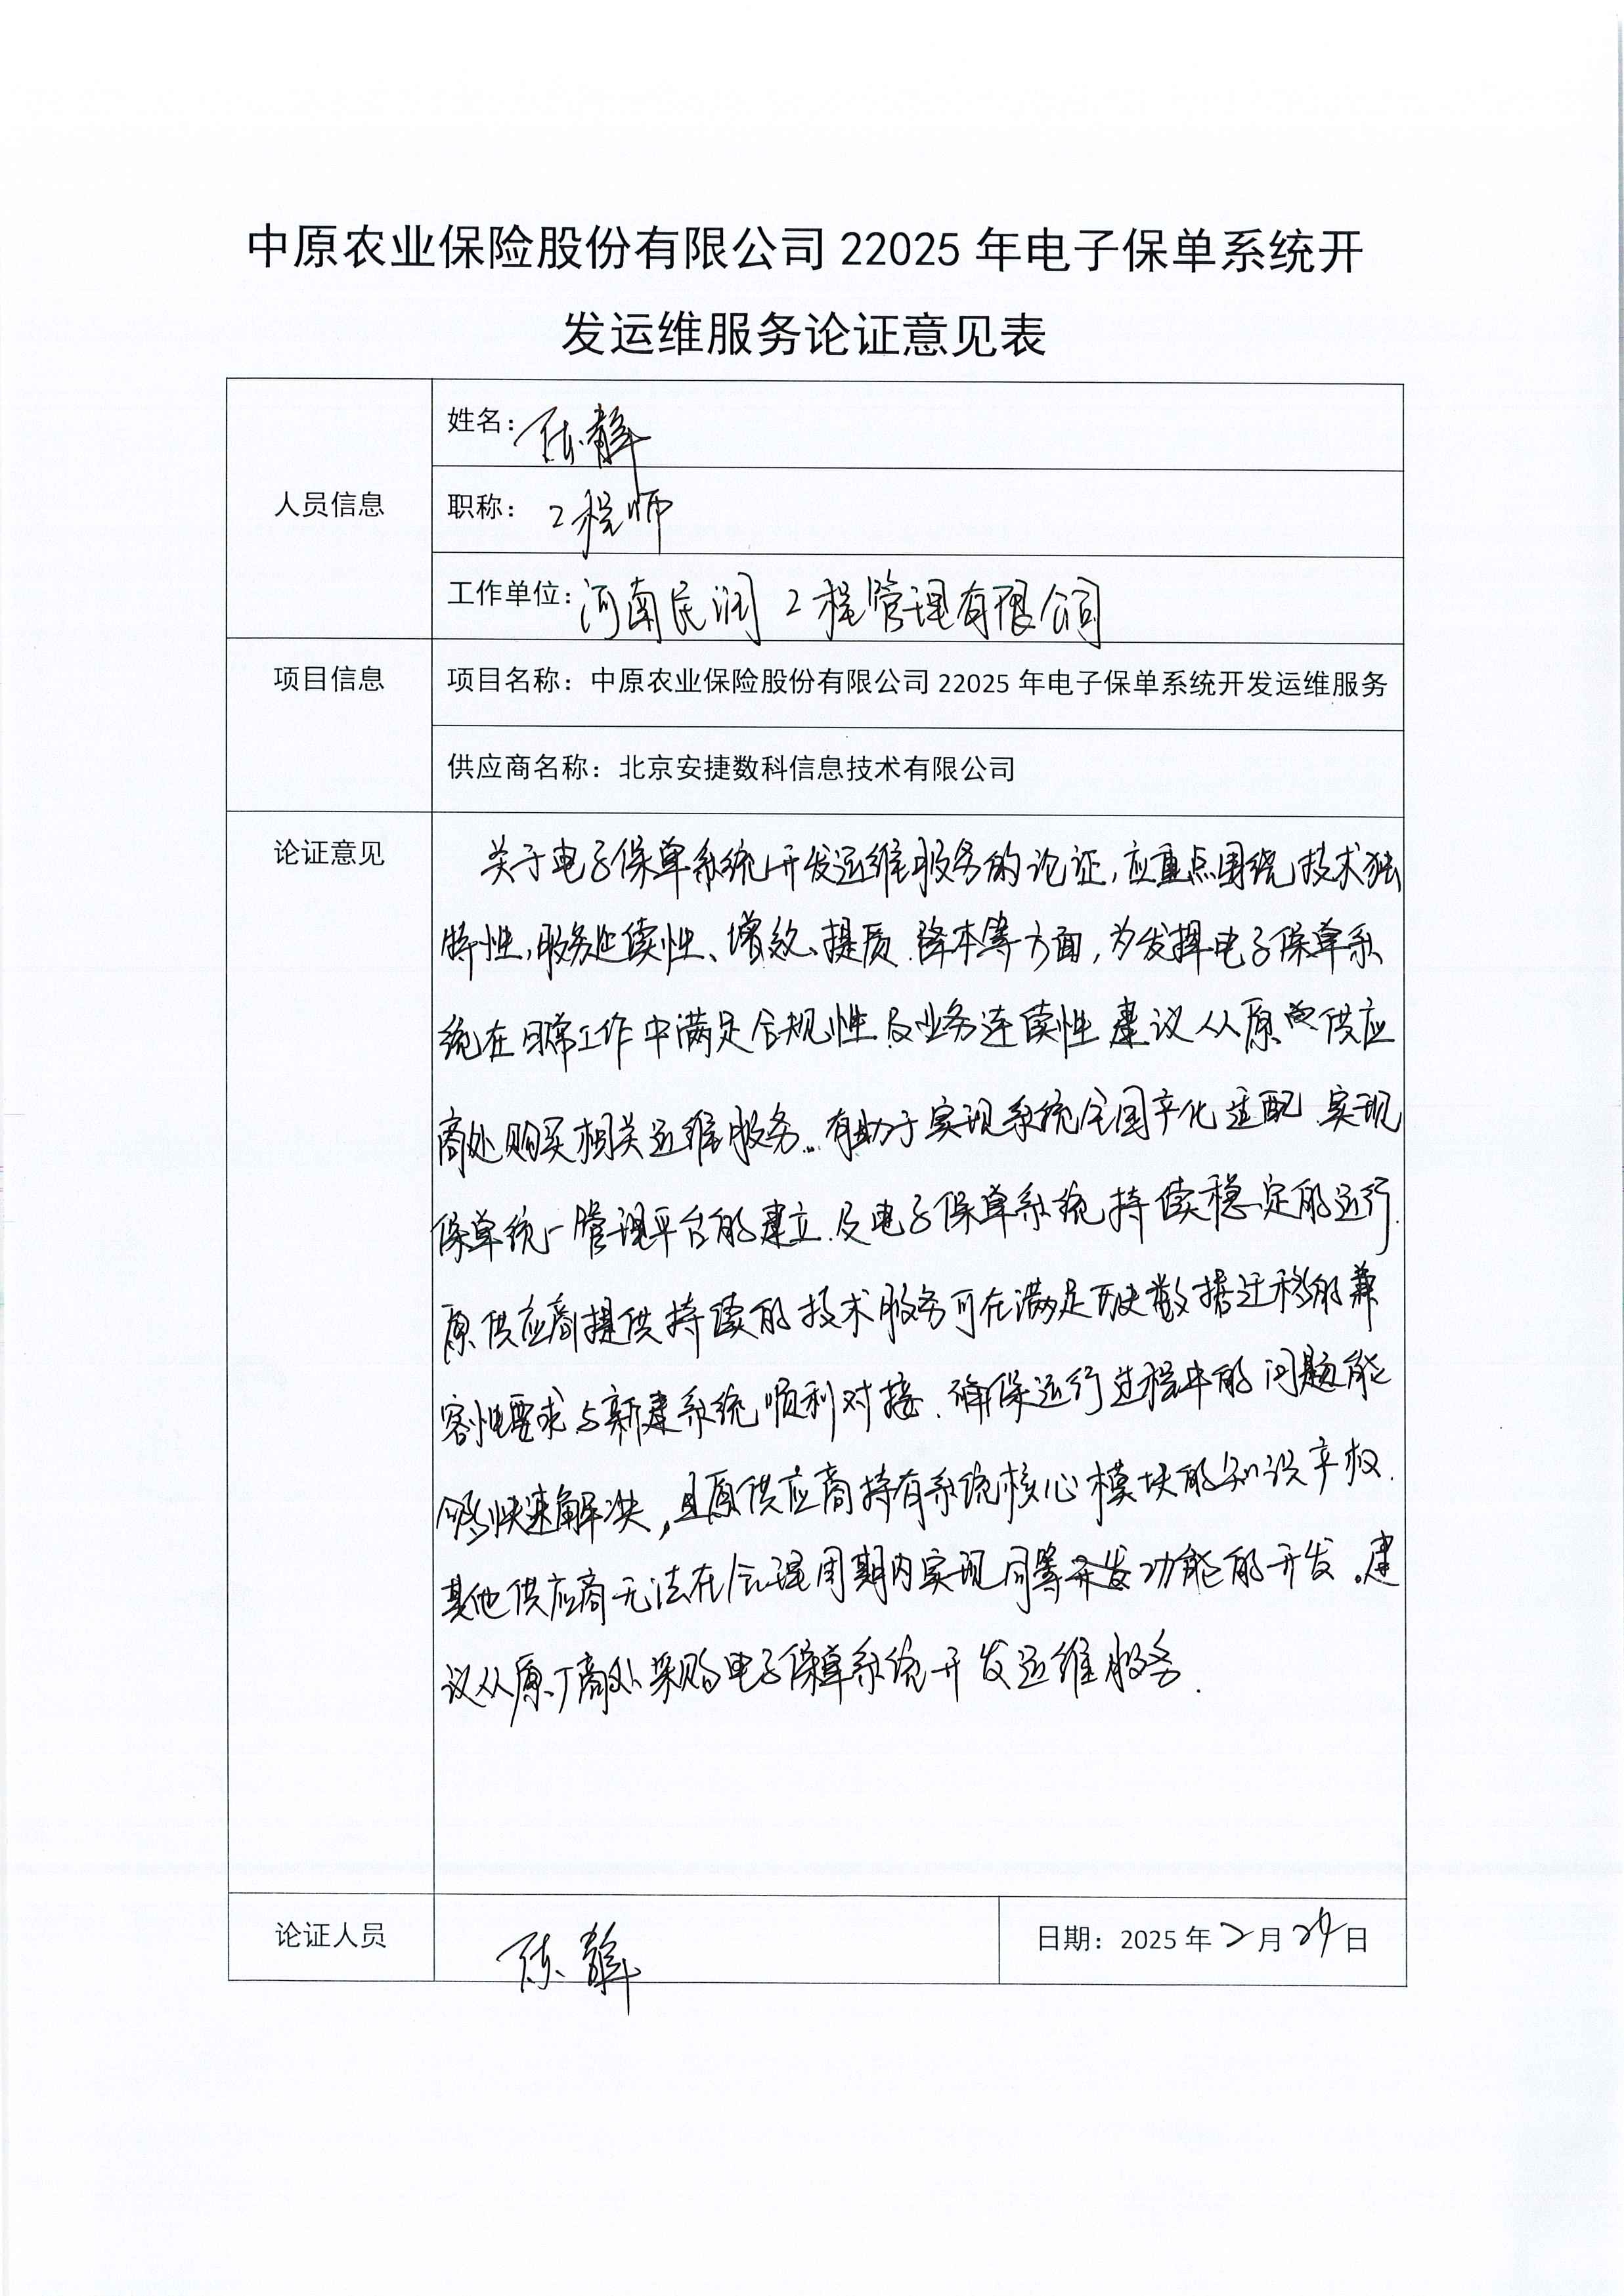 中原农业保险股份有限公司 22025 年电子保单系统开
发运维服务论证意见表
人员信息
姓名：陈静
职称：工程师
工作单位：河南民润工程管理有限公司
项目信息
项目名称：中原农业保险股份有限公司 22025 年电子保单系统开发运维服务
供应商名称：北京安捷数科信息技术有限公司
论证意见
关于电子保单系统开发运维服务的论证，应重点围绕技术独
特性，服务延续性、增效、提质、降本等方面，为发挥电子保单系
统在日常工作中满足合规性及业务连续性建议从原供应
商处购买相关运维服务。有助于实现系统全国产化适配、实现
保单统一管理平台的建立、及电子保单系统持续稳定的运行.
原供应商提供持续的技术服务可在满足历史数据迁移的兼
容性要求与新建系统顺利对接、确保运行过程中的问题能
够快速解决，且原供应商持有系统核心模块的知识产权.
其他供应商无法在合理周期内实现同等开发功能的开发。建
议从原厂商处采购电子保单系统开发运维服务.
论证人员
陈静
日期：2025 年 2 月 24 日